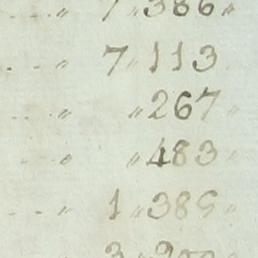 7 „ 386 „
7 „ 113
„ 267
„ 483
1 „ 389 „